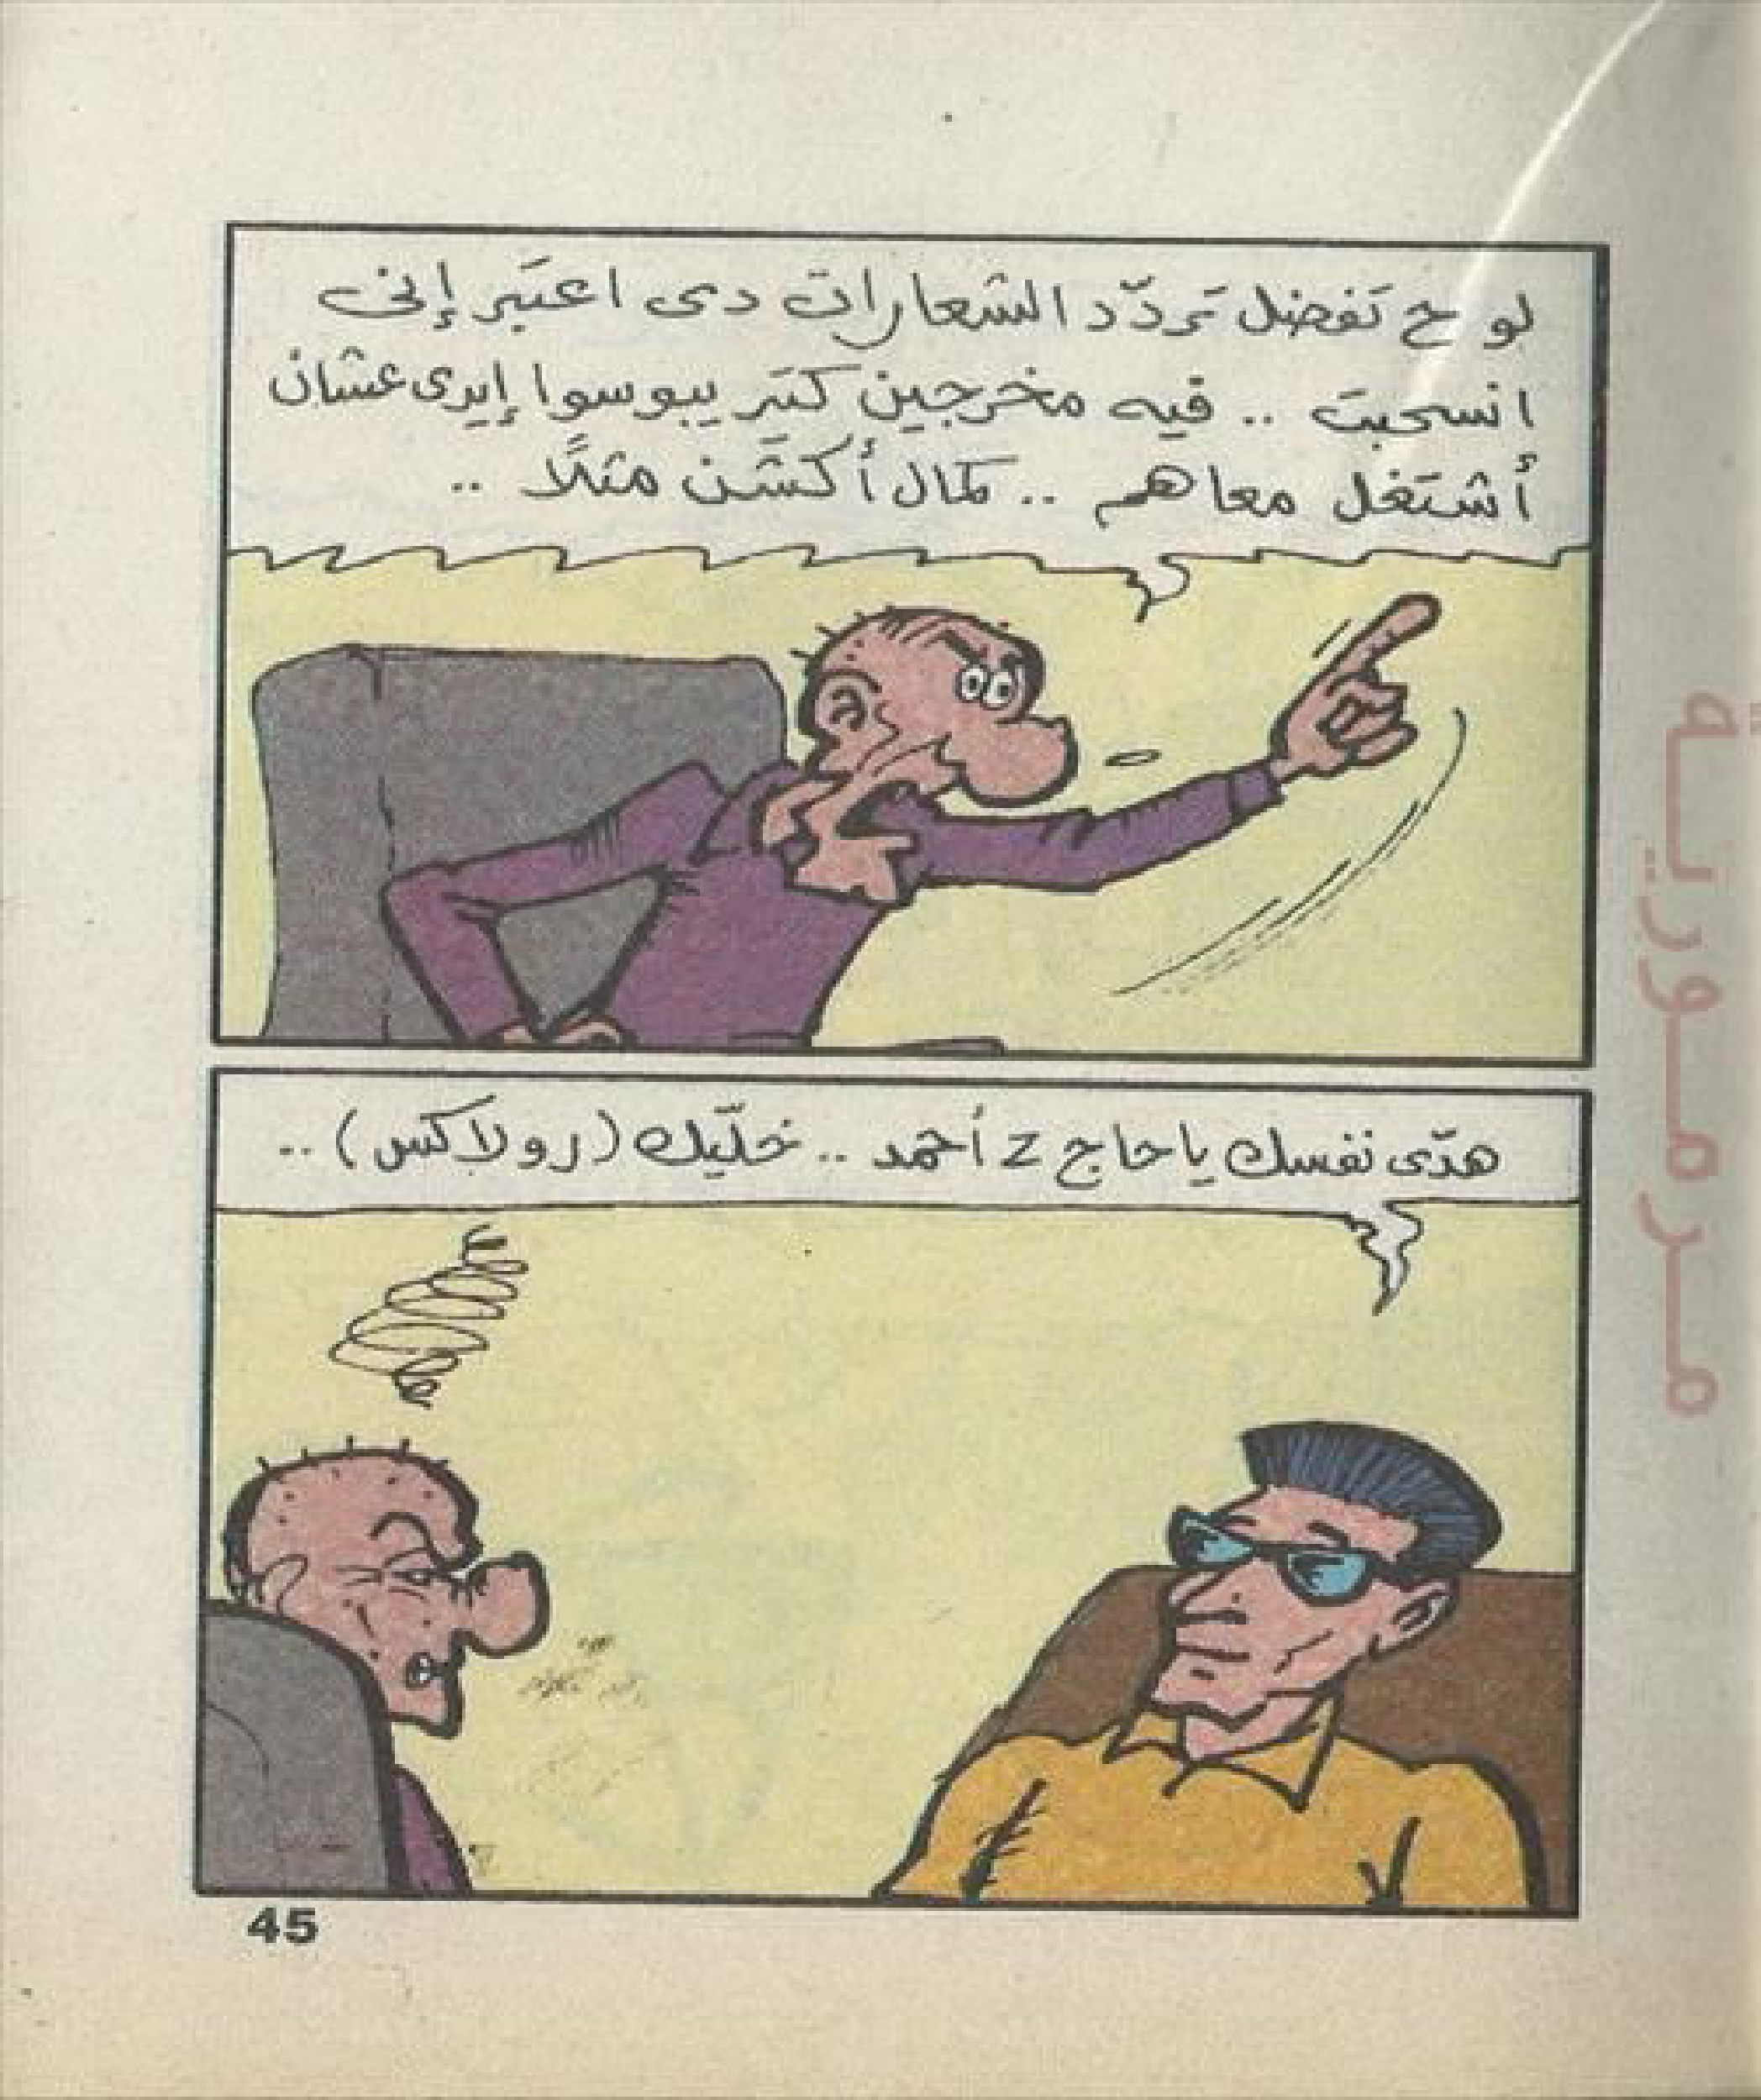 لو ح تفضل تردّد الشعارات دى اعتبر إنى
انسحبت .. فيه مخرجين كتير يبوسوا إيدى عشان
أشتغل معاهم .. كمال أكشن مثلاً ..
هدّى نفسك يا حاج z أحمد .. خلّيك (رولاكس) ..
45